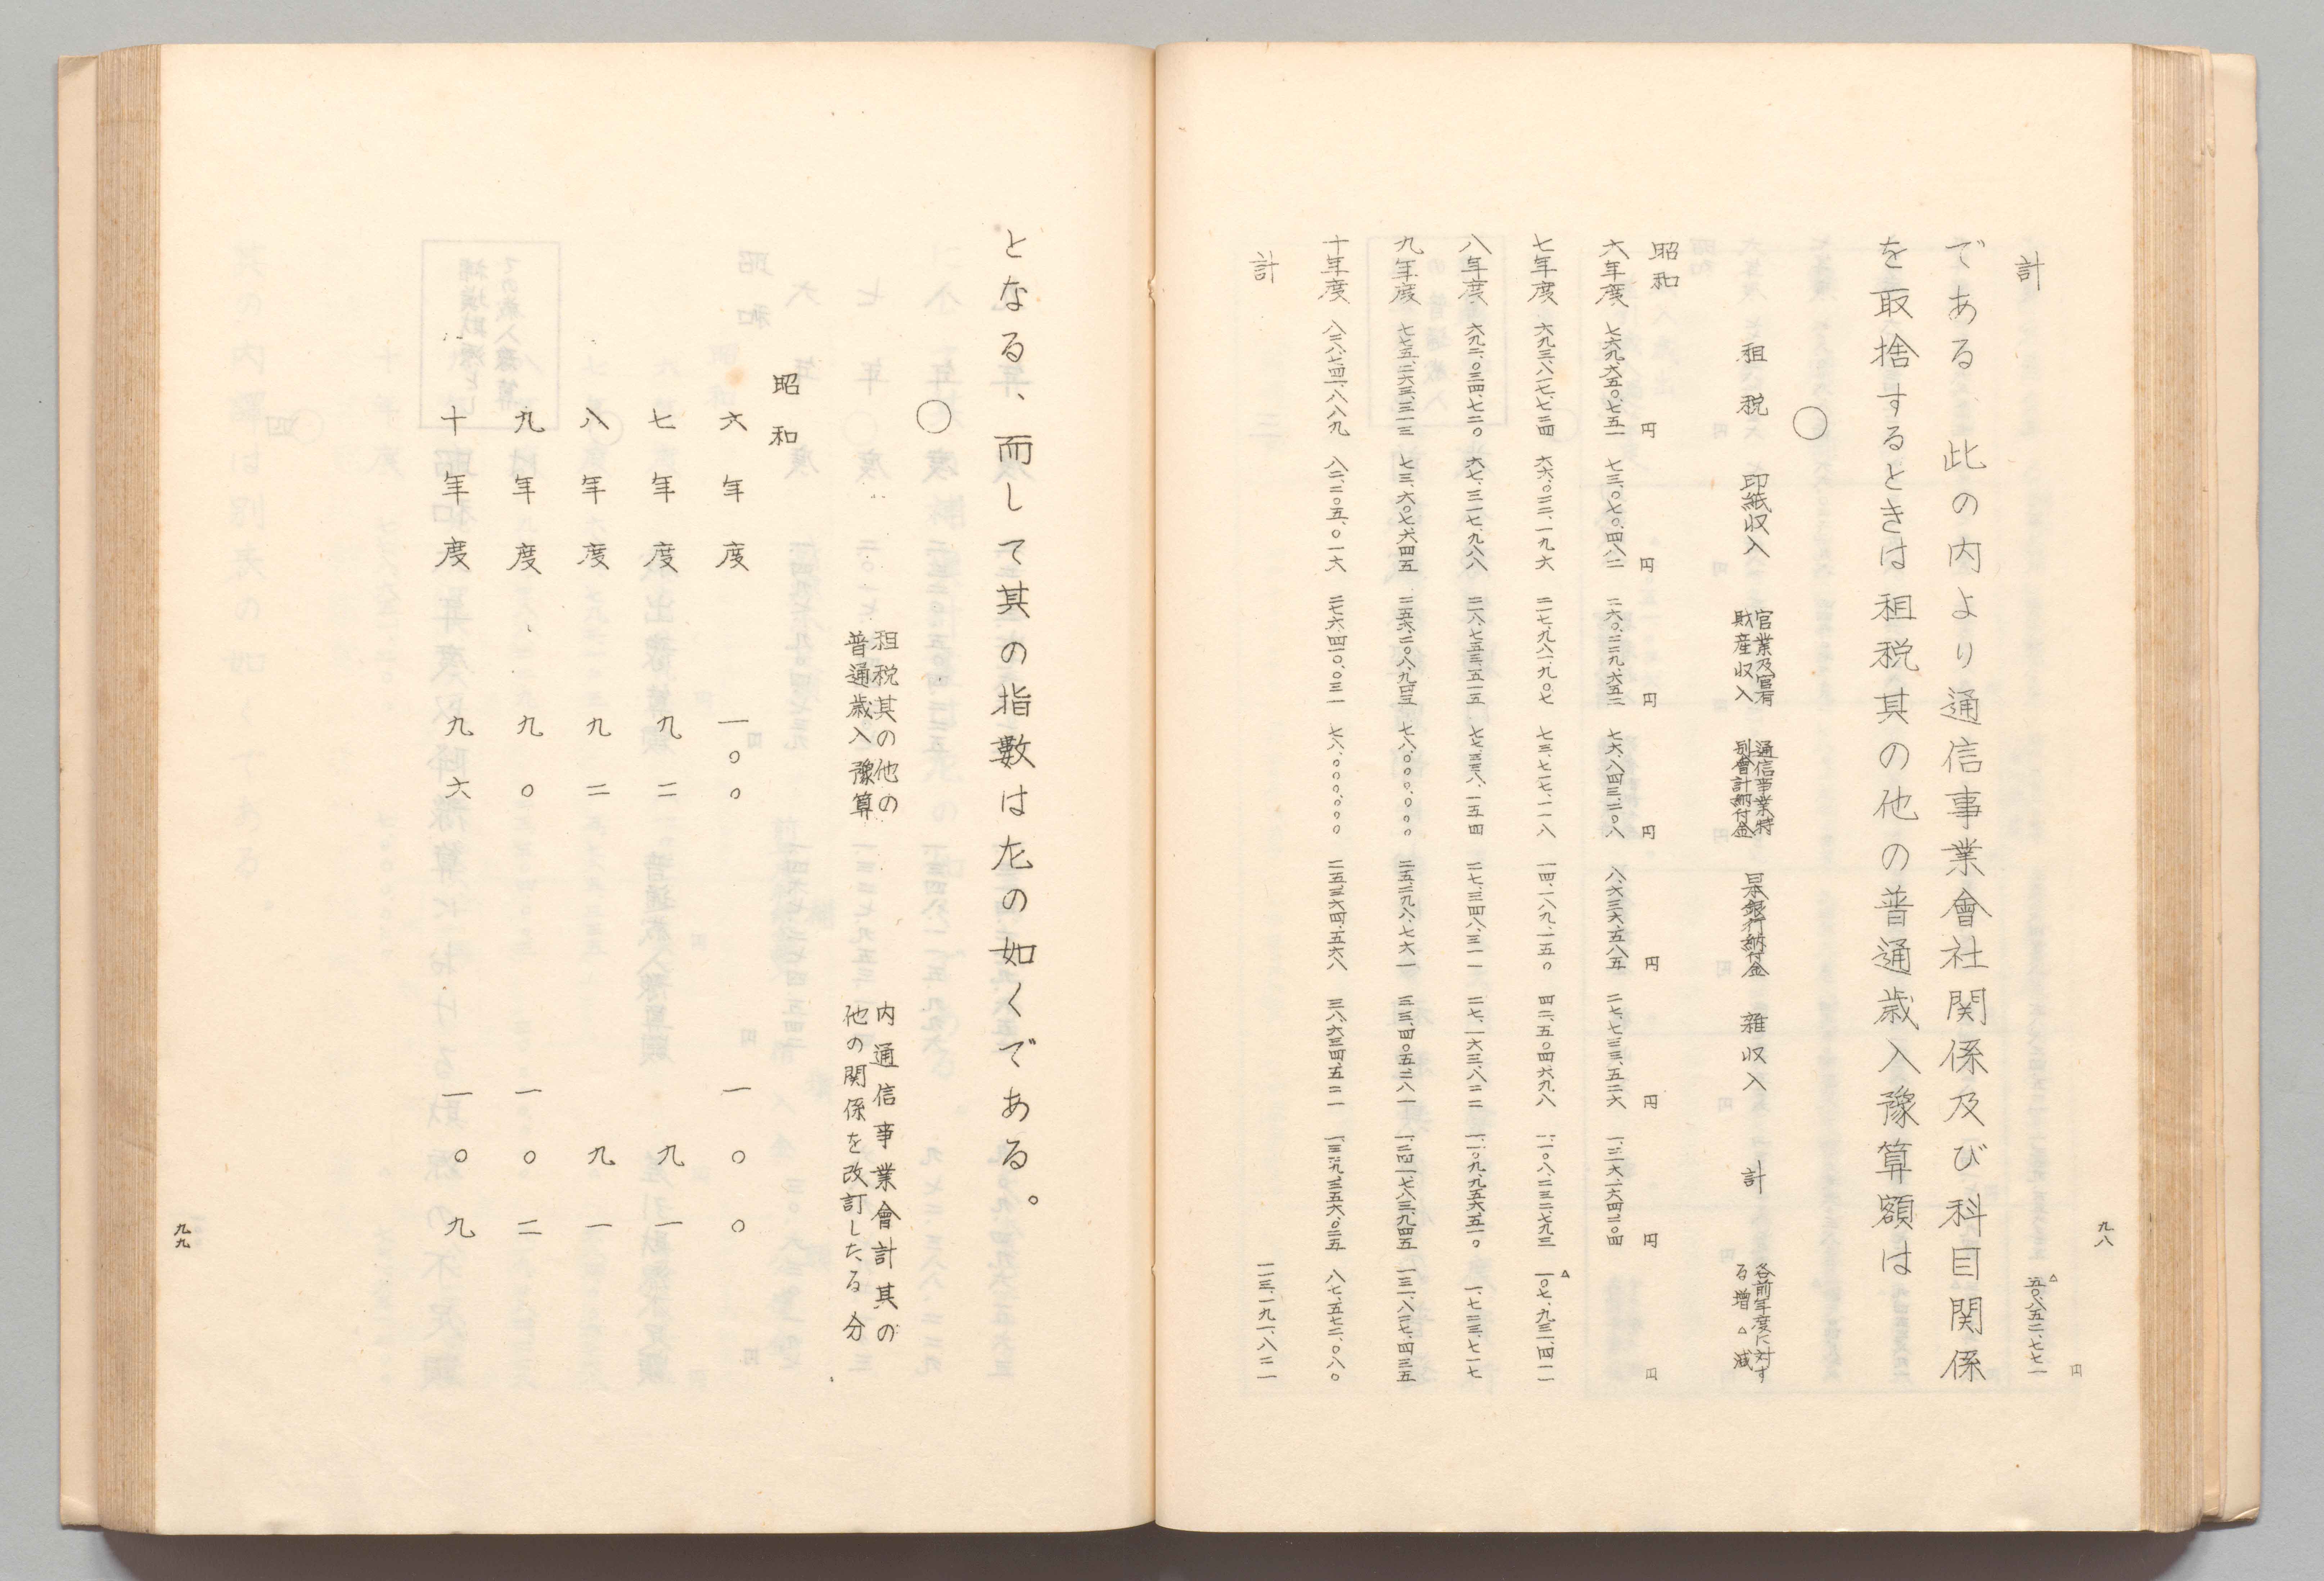 九八
円
計 △五〇、八五二、七七一
である、此の内より通信事業會社関係及び科目関係
を取捨するときは租税其の他の普通歳入豫算額は
〇
租税 印紙収入 官業及官有財産収入 通信事業特別會計納付金 日本銀行納付金 雑収入 計 各前年度に対する増△減
昭和 円 円 円 円 円 円 円 円
六年度 七六九、六五〇、七五一 七三、〇七〇、四八二 二六〇、二二九、六五二 七六、八四三、二〇八 八、六三六、五八五 二七、七三三、五二六 一、二一六、一六四、二〇四
七年度 六九三、八一七、七二四 六六、〇二二、一九六 二一七、九八一、九〇七 七三、七一七、一一八 一四、一八九、一五〇 四二、五〇四、六九八 一、一〇八、二三二、七九三 △一〇七、九三一、四一一
八年度 六九二、〇三四、七二〇 六七、三一七、九八八 二一八、七五三、五一五 七七、三三八、一五四 二七、三四八、三一一 二七、一六三、八二二 一、一〇九、九五六、五一〇 一、七二三、七一七
九年度 七七五、二六三、三一三 七三、六〇七、六四五 二五六、二〇八、九四三 七八、〇〇〇、〇〇〇 二五、二九八、七六一 三三、四〇五、二八一 一、二四一、七八三、九四五 一三一、八二七、四三五
十年度 八二八、七四一、八八九 八二、二〇五、〇一六 二七六、四一〇、〇三一 七八、〇〇〇、〇〇〇 二五、三六四、五六八 三八、六三四、五二一 一、三二九、三五六、〇二五 八七、五七二、〇八〇
計 一一三、一九一、八二一
となる、而して其の指數は左の如くである。
〇
租税其の他の普通歳入豫算 内通信事業會計其の他の関係を改訂したる分
昭和
六年度 一〇〇 一〇〇
七年度 九二 九一
八年度 九二 九一
九年度 九〇 一〇二
十年度 九六 一〇九
九九